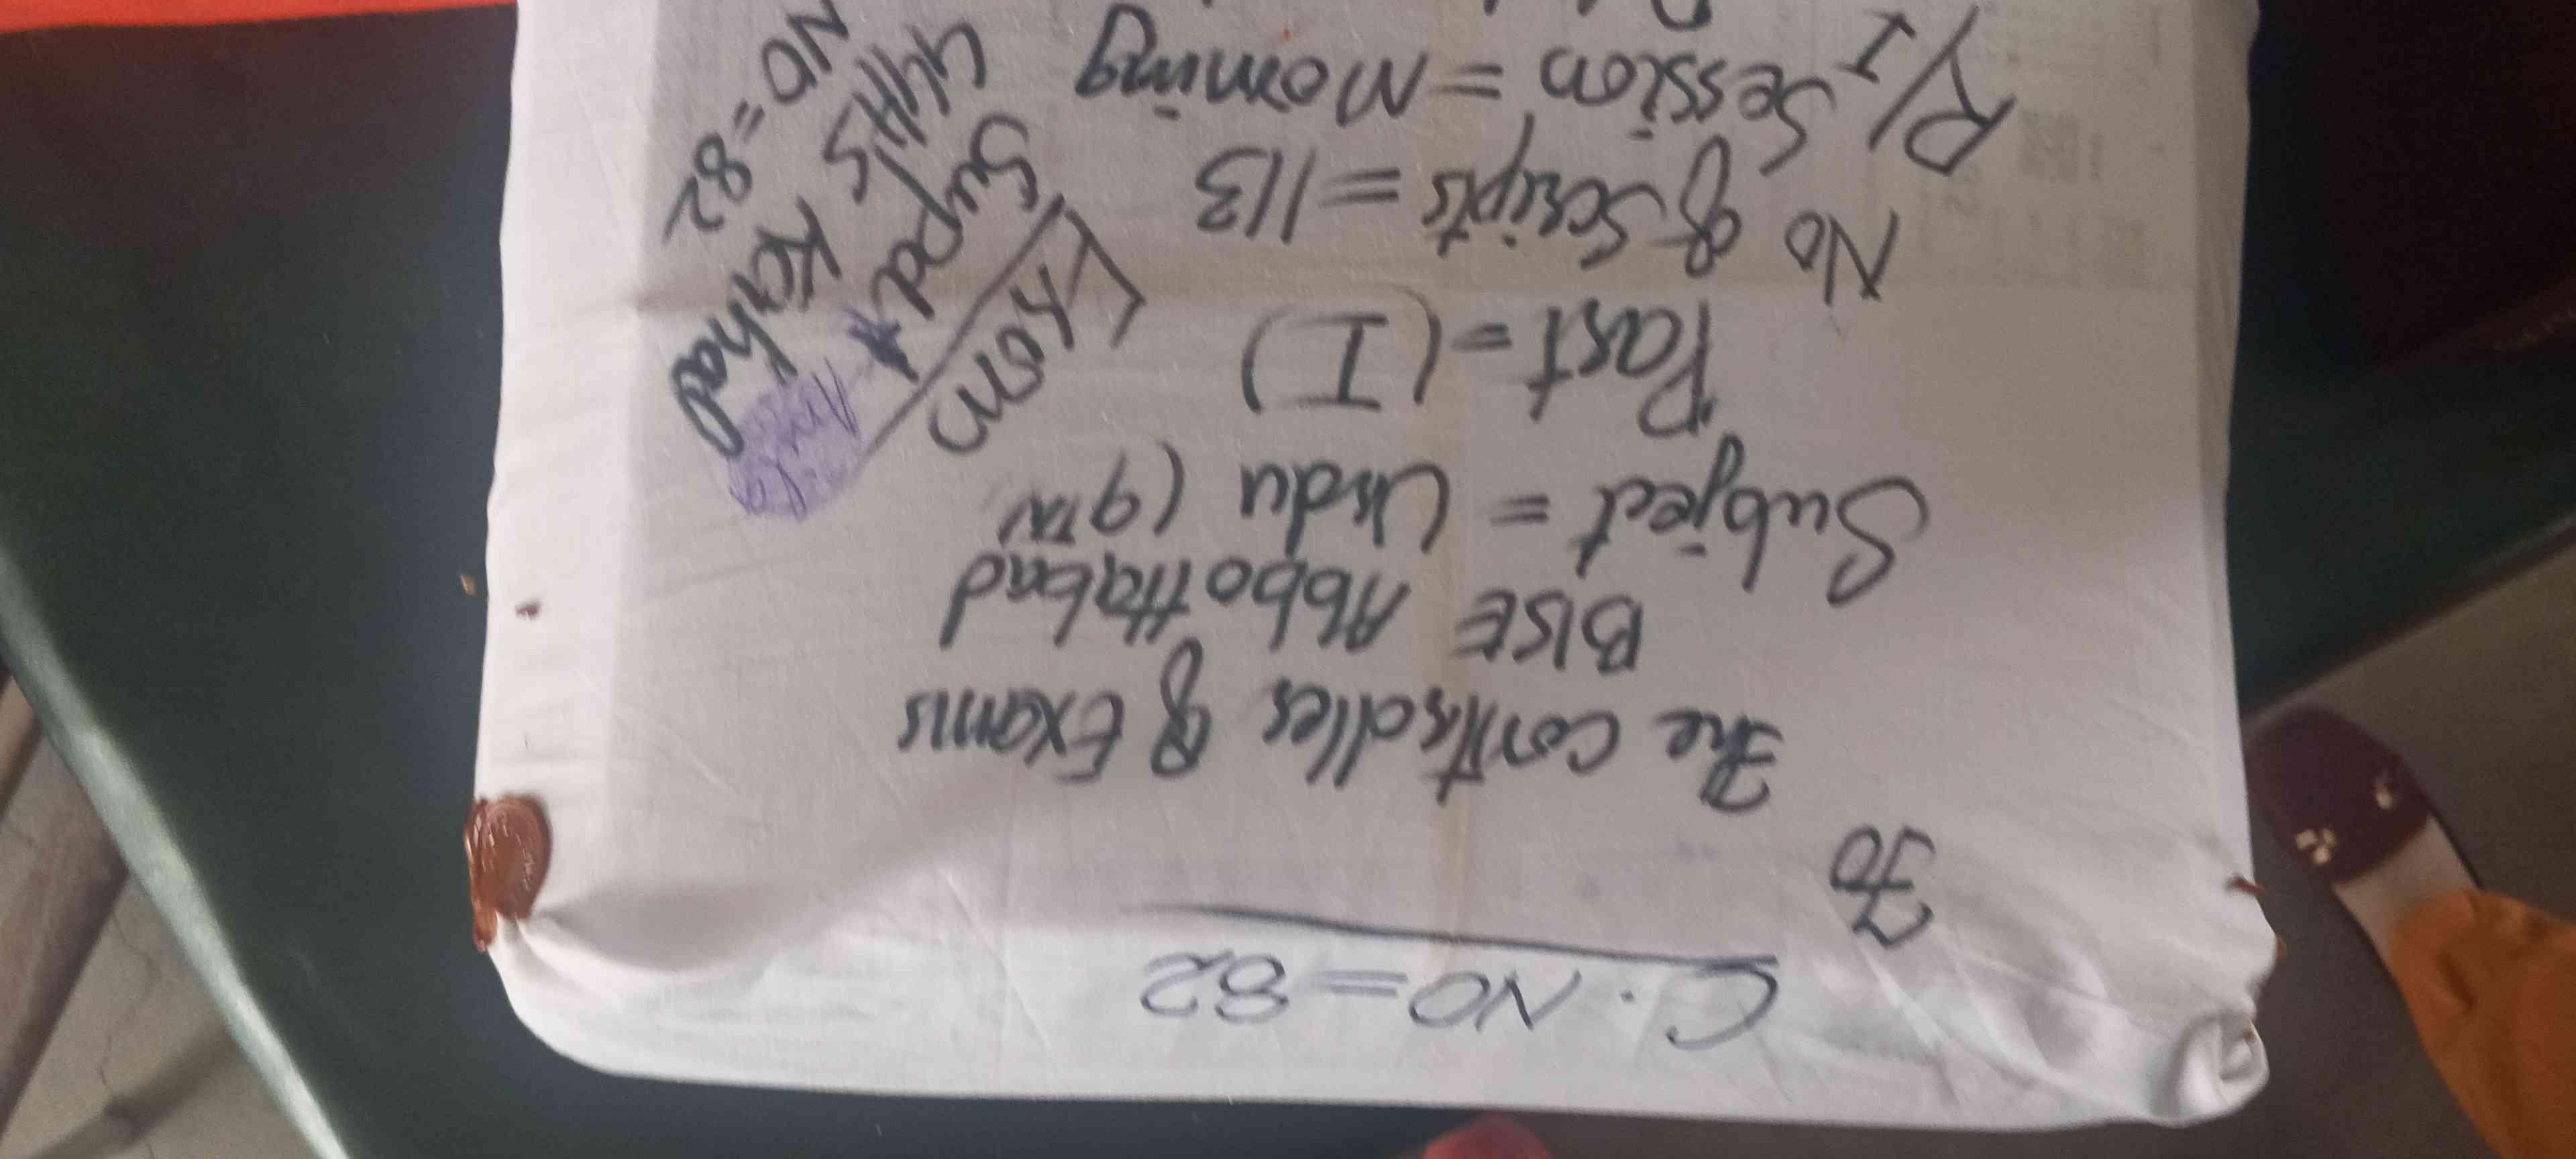 C. NO = 82
To
The Controller of Exams
BISE Abbottabad
Subject = Urdu (9TH
Part = (I)
No of Scripts = 113
Session = Morning
P/I
From
Supdt
GHS Karhad
NO = 82